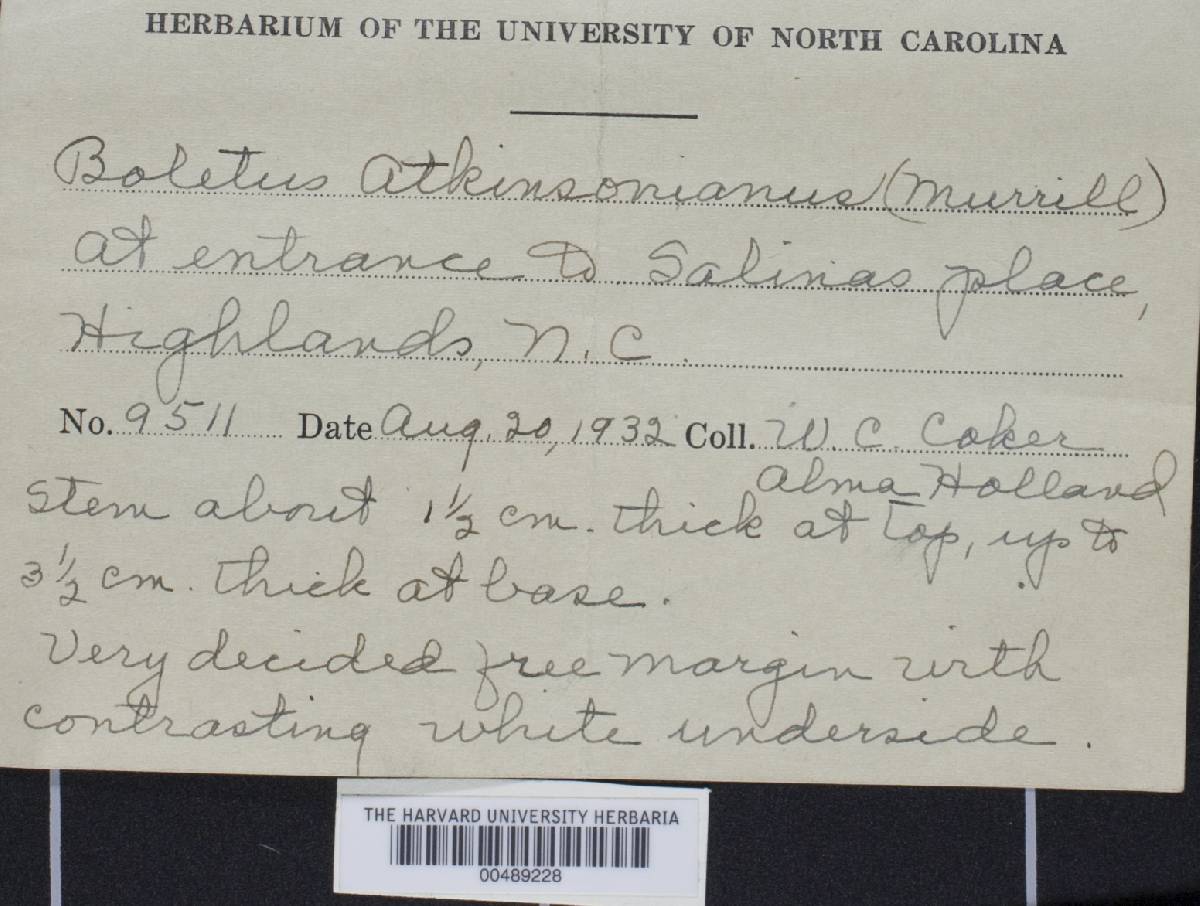 HERBARIUM OF THE UNIVERSITY OF NORTH CAROLINA
Boletus Atkinsonianus (Murrill)
At entrance to Salinas place,
Highlands, N.C.
No. 9511 Date Aug. 20, 1932 Coll. W. C. Coker
Alma Holland
Stem about 1½ cm. thick at top, up to
3½ cm. thick at base.
Very decided free margin with
contrasting white underside.
THE HARVARD UNIVERSITY HERBARIA
00489228